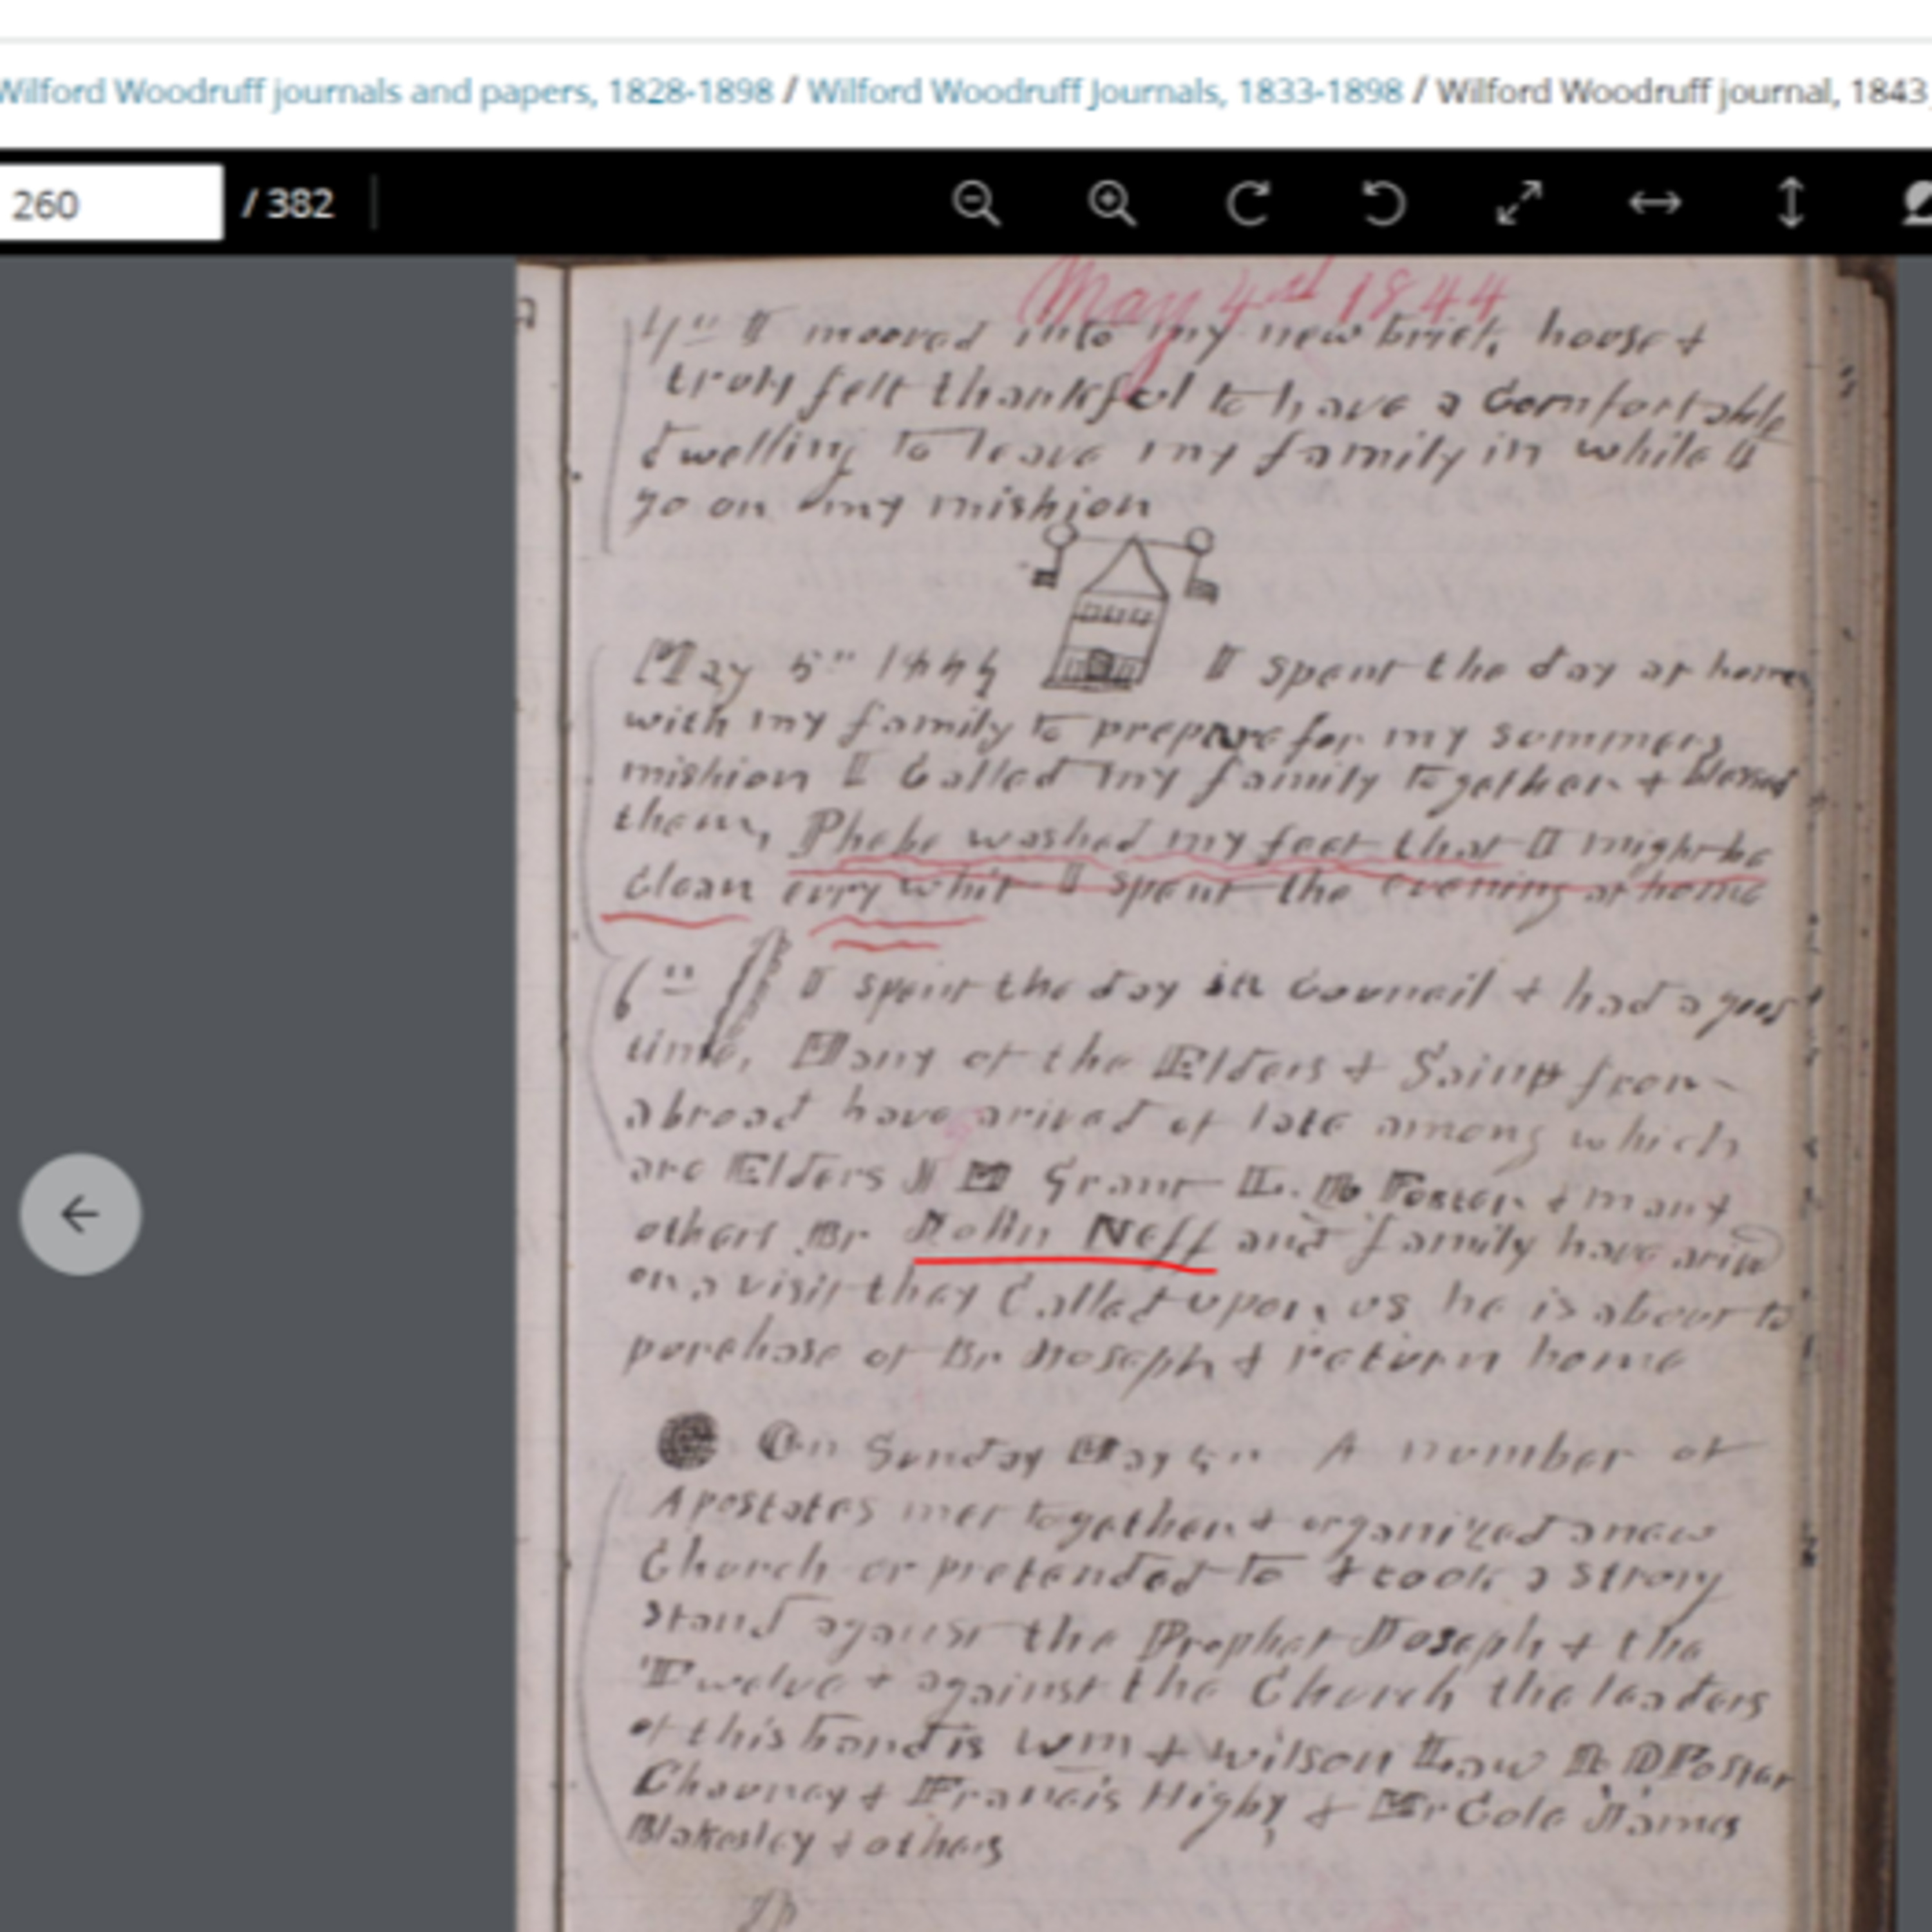 Wilford Woodruff journals and papers, 1828-1898 / Wilford Woodruff Journals, 1833-1898 / Wilford Woodruff journal, 1843
260 / 382
May 4th 1844
4th I mooved into my new brick house &
truly felt thankful to have a Comfortable
dwelling to leave my family in while I
go on my mishion
May 5th 1844 I spent the day at home
with my family to prepare for my summers
mishion I Called my family together & blessed
them, Phebe washed my feet that I might be
Clean evry whit I spent the evening at home
6th I spent the day in Council & had a good
time, Many of the Elders & Saints from
abroad have arived of late among which
are Elders J M Grant & many
others Br John Neff and family have arived
on a visit they Called upon us he is about to
purchase of Br Joseph & return home
On Sunday May 5th A number of
Apostates met together & organized a new
Church or pretended to & took a strong
stand against the Prophet Joseph & the
Twelve & against the Church the leaders
of this band is Wm & Wilson Law R D Foster
Chauncy & Francis Higby, & Mr Cole James
Blakesley & others